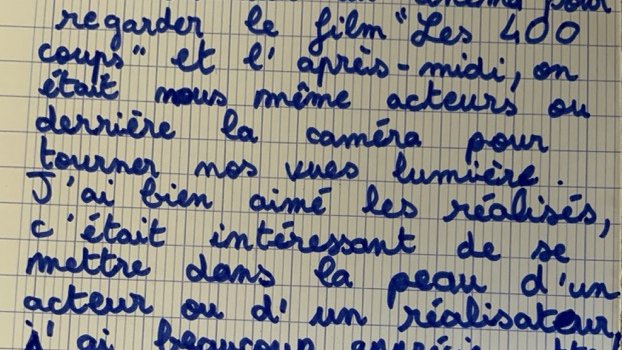 cinéma pour
regarder le film "Les 400
coups" et l'après-midi, on
était nous même acteurs ou
derrière la caméra pour
tourner nos vues lumière.
J'ai bien aimé les réalisés,
c'était intéressant de se
mettre dans la peau d'un
acteur ou d'un réalisateur,
j'ai beaucoup